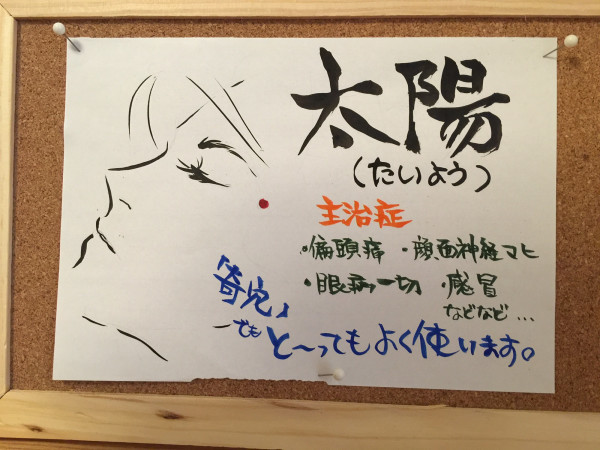 太陽
(たいよう)
主治症
・偏頭痛 ・顔面神経マヒ
・眼病一切 ・感冒
などなど…
「奇穴」
でも と〜ってもよく使います。